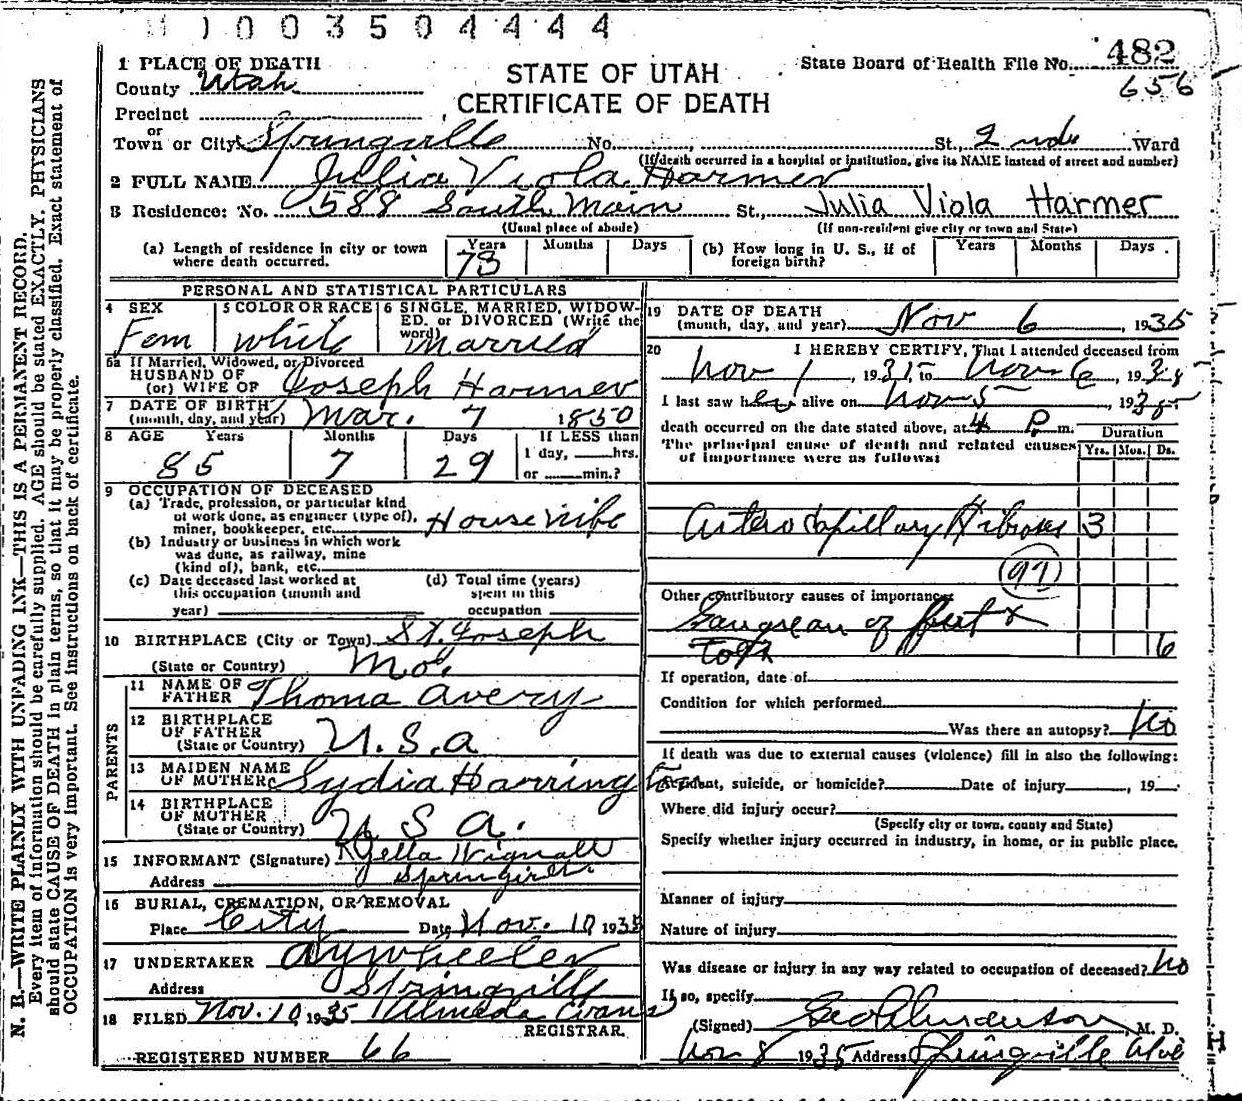 1003504444
482
656
State Board of Health File No.
STATE OF UTAH
CERTIFICATE OF DEATH
1 PLACE OF DEATH
County Utah
Precinct
or
Town or City Springville No. St., 2nd Ward
(If death occurred in a hospital or institution, give its NAME instead of street and number)
2 FULL NAME Julia Viola Harmer
3 Residence: No. 588 South Main St., Julia Viola Harmer
(Usual place of abode) (If non-resident give city or town and State)
(a) Length of residence in city or town where death occurred. Years 73 Months Days (b) How long in U. S., if of foreign birth? Years Months Days
PERSONAL AND STATISTICAL PARTICULARS
4 SEX Fem
5 COLOR OR RACE white
6 SINGLE, MARRIED, WIDOW-
ED, or DIVORCED (Write the
word) Married
6a If Married, Widowed, or Divorced
HUSBAND OF
(or) WIFE OF Joseph Harmer
7 DATE OF BIRTH
(month, day, and year) Mar. 7 1850
8 AGE Years Months Days If LESS than
85 7 29 1 day, hrs.
or min.?
9 OCCUPATION OF DECEASED
(a) Trade, profession, or particular kind
of work done, as engineer (type of),
miner, bookkeeper, etc. Housewife
(b) Industry or business in which work
was done, as railway, mine
(kind of), bank, etc.
(c) Date deceased last worked at
this occupation (month and
year)
(d) Total time (years)
spent in this
occupation
10 BIRTHPLACE (City or Town) St. Joseph
(State or Country) Mo.
PARENTS
11 NAME OF
FATHER Thoma Avery
12 BIRTHPLACE
OF FATHER
(State or Country) U.S.a
13 MAIDEN NAME
OF MOTHER Lydia Harrington
14 BIRTHPLACE
OF MOTHER
(State or Country) U S a.
15 INFORMANT (Signature) Wignall
Address
16 BURIAL, CREMATION, OR REMOVAL
Place City Date Nov. 10 1935
17 UNDERTAKER A y wheeler
Address Springville
18 FILED Nov. 10, 1935 Almeda Evans
REGISTRAR.
REGISTERED NUMBER 66
19 DATE OF DEATH
(month, day, and year) Nov 6, 1935
20 I HEREBY CERTIFY, That I attended deceased from
Nov 1, 1935, to Nov 6, 1935
I last saw her alive on Nov 5, 1935
death occurred on the date stated above, at 4 P. m.
The principal cause of death and related causes
of importance were as follows:
Duration
Yrs. Mos. Ds.
Arterocapillary Fibrosis 3
97
Other contributory causes of importance:
Gangrean of feet &
6
If operation, date of
Condition for which performed
Was there an autopsy? No
If death was due to external causes (violence) fill in also the following:
Accident, suicide, or homicide? Date of injury , 19
Where did injury occur?
(Specify city or town, county and State)
Specify whether injury occurred in industry, in home, or in public place.
Manner of injury
Nature of injury
Was disease or injury in any way related to occupation of deceased? No
If so, specify
(Signed) Geo Anderson, M. D.
Nov 8 1935 Address Springville
N. B.—WRITE PLAINLY WITH UNFADING INK—THIS IS A PERMANENT RECORD.
Every item of information should be carefully supplied. AGE should be stated EXACTLY. PHYSICIANS
should state CAUSE OF DEATH in plain terms, so that it may be properly classified. Exact statement of
OCCUPATION is very important. See instructions on back of certificate.
H